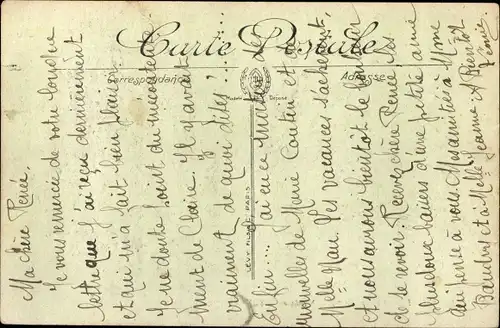 Carte Postale
Correspondance
Adresse
LEVY FILS & Cie PARIS
Ma chère Renée.
Je vous remercie de votre longue
lettre que j'ai reçu dernièrement
et qui m'a fait bien plaisir
Je ne doute point du
de Claire. Il y avait
vraiment de quoi dites!
Enfin
nouvelles de Marie et de
Melle Nau. Les vacances s'achèvent
et nous aurons bientôt le bonheur
de se revoir. Recevez chère Renée les
plus doux baisers d'une petite amie
qui pense à vous. Mes amitiés à Mme
et à Melle Jeanne. A Bientôt